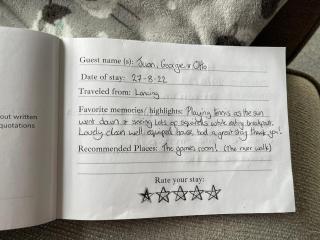 out written
quotations
Guest name (s): Juan, Georgie & Otto
Date of stay: 27-8-22
Traveled from: Lancing
Favorite memories/ highlights: Playing tennis as the sun
went down & seeing lots of squirrels while eating breakfast.
Lovely clean well equiped house, had a great stay thank you!
Recommended Places: The games room! (The river walk)
Rate your stay: